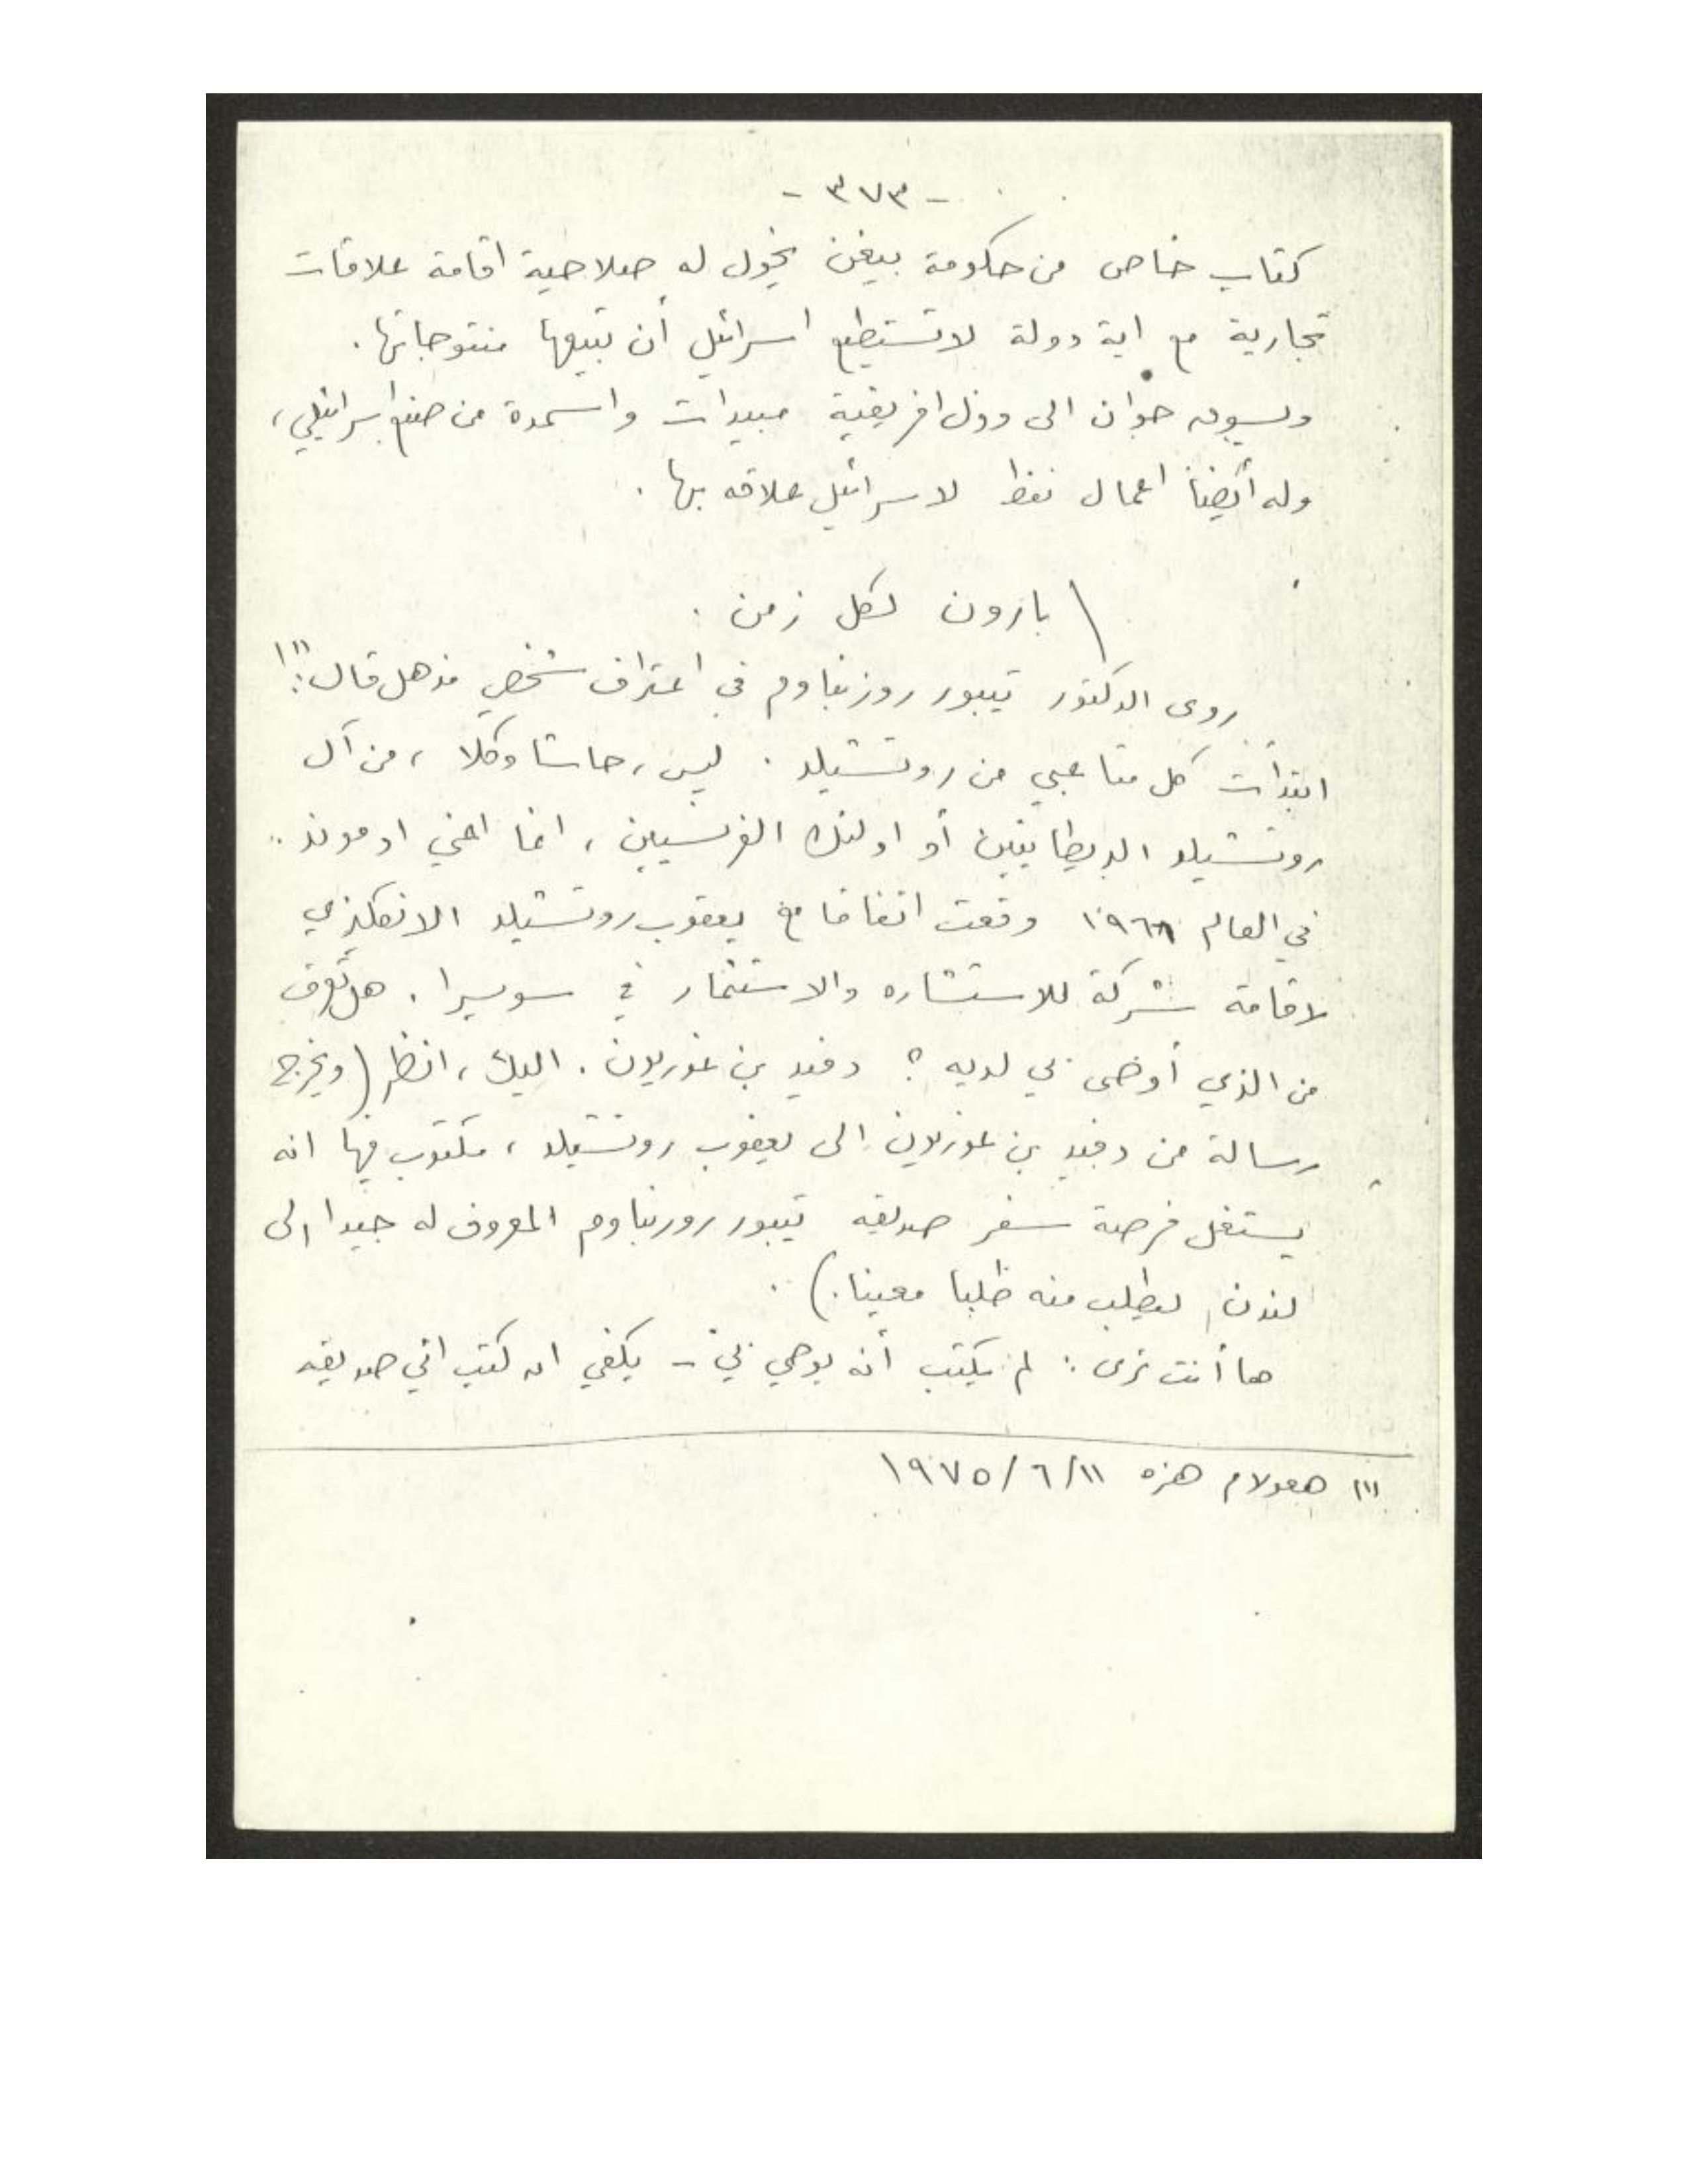 - ٣٧٣ -
كتاب خاص من حكومة بيغن يخول له صلاحية اقامة علاقات
تجارية مع اية دولة لا تستطيع اسرائيل أن تبيعها منتوجاتها .
ويسوق جوان الى دول افريقية مبيدات واسمدة من صنع اسرائيلي ،
وله أيضا اعمال نفط لاسرائيل علاقه بها .
بارون لكل زمن .
روى الدكتور تيبور روزنباوم في اعتراف شخصي مذهل قال :"١"
ابتدأت كل متاعبي من روتشيلد . ليس ، حاشا وكلا ، من آل
روتشيلد البريطانيين أو اولئك الفرنسيين ، انما اعني ادموند ..
في العام ١٩٦٨ وقعت اتفاقا مع يعقوب روتشيلد الانكليزي
لاقامة شركة للاستشاره والاستثمار في سويسرا . هل تعرف
من الذي أوصى بي لديه ؟ دفيد بن غوريون . اليك ، انظر (ويخرج
رسالة من دفيد بن غوريون الى يعقوب روتشيلد ، مكتوب فيها انه
يستغل فرصة سفر صديقه تيبور روزنباوم المعروف له جيدا الى
لندن ليطلب منه طلبا معينا .) .
ها أنت ترى : لم يكتب أنه يوصي بي - يكفي انه كتب اني صديقه
"١" هعولام هزه ١١/ ٦/ ١٩٧٥